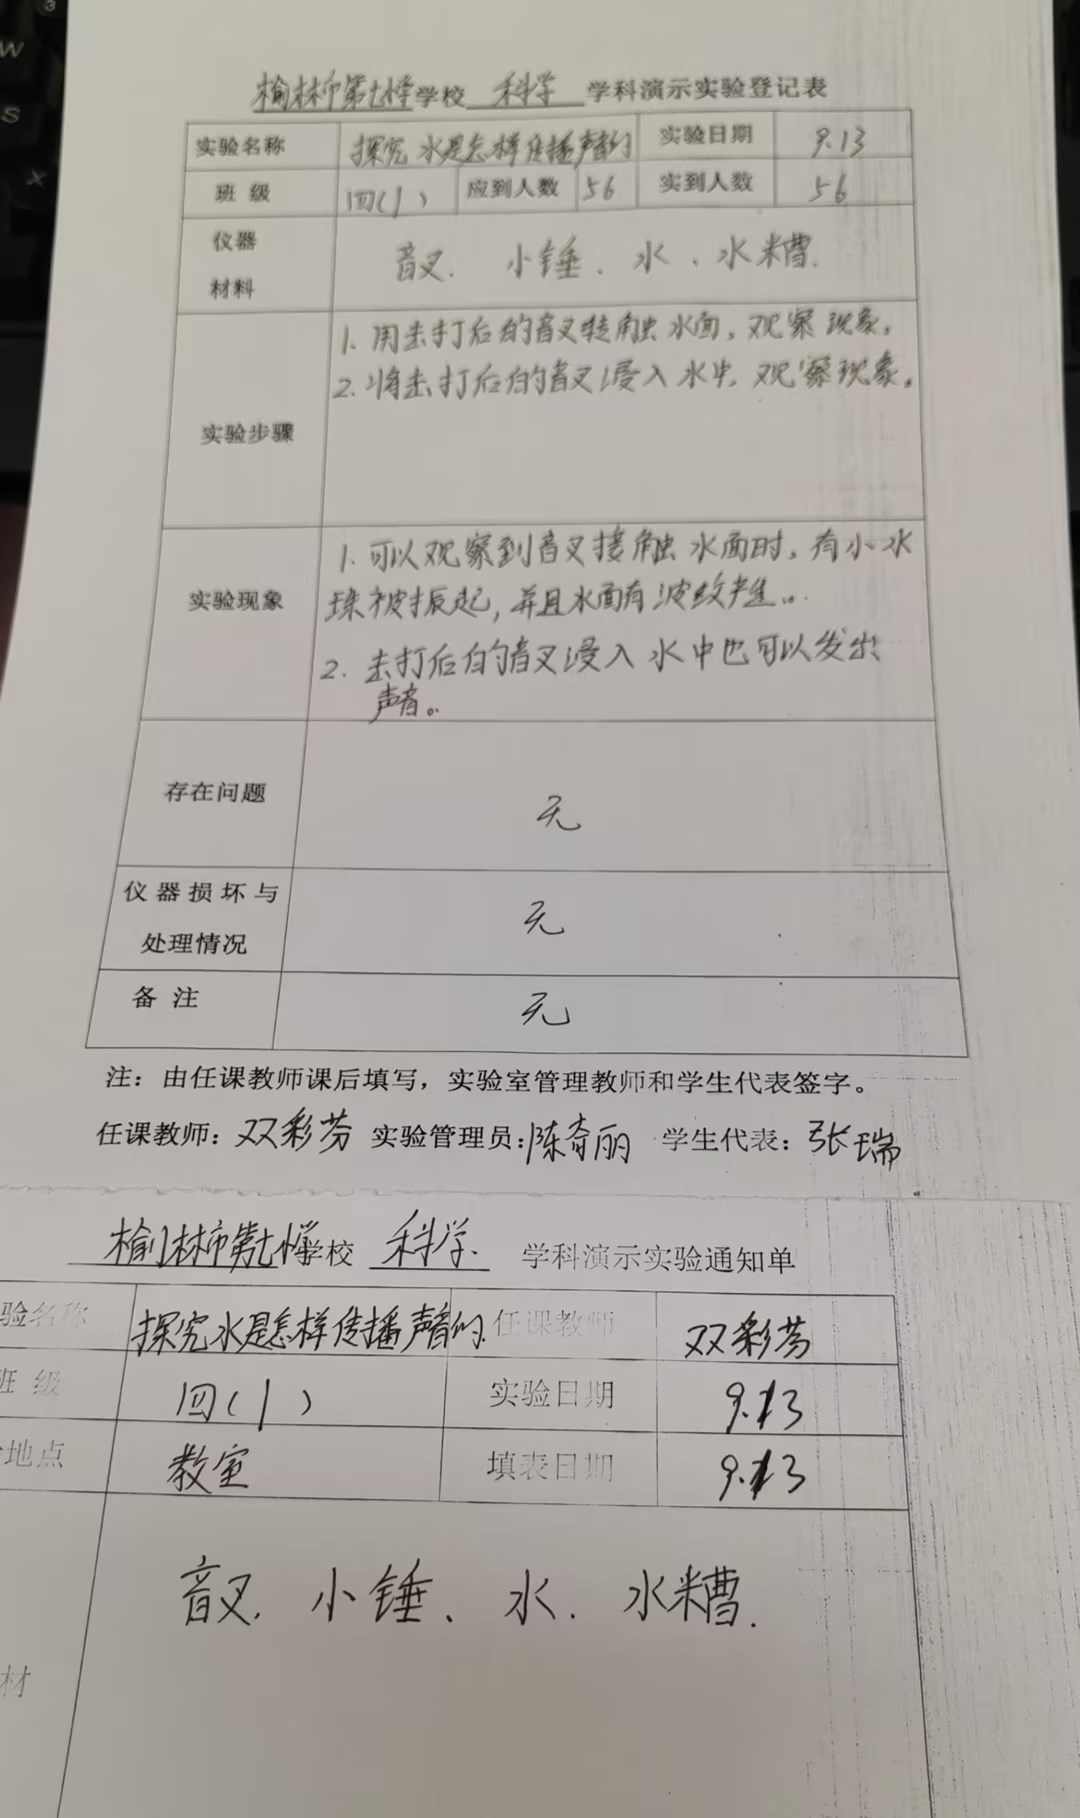 榆林市第七小学学校 科学 学科演示实验登记表
实验名称 探究水是怎样传播声音的 实验日期 9.13
班 级 四(1) 应到人数 56 实到人数 56
仪器
材料
音叉. 小锤、水、水糟.
实验步骤
1. 用击打后的音叉轻触水面,观察现象。
2. 将击打后的音叉浸入水中,观察现象。
实验现象
1. 可以观察到音叉接触水面时,有小水
珠被振起,并且水面有波纹产生。
2. 击打后的音叉浸入水中也可以发出
声音。
存在问题 无
仪器损坏与
处理情况
无
备 注 无
注:由任课教师课后填写,实验室管理教师和学生代表签字。
任课教师:双彩芬 实验管理员:陈奇丽 学生代表:张瑞
榆林市第七小学学校 科学. 学科演示实验通知单
验名称 探究水是怎样传播声音的. 任课教师 双彩芬
班 级 四(1) 实验日期 9.13
地点 教室 填表日期 9.13
音叉. 小锤、水. 水糟.
材
W
S
X
3